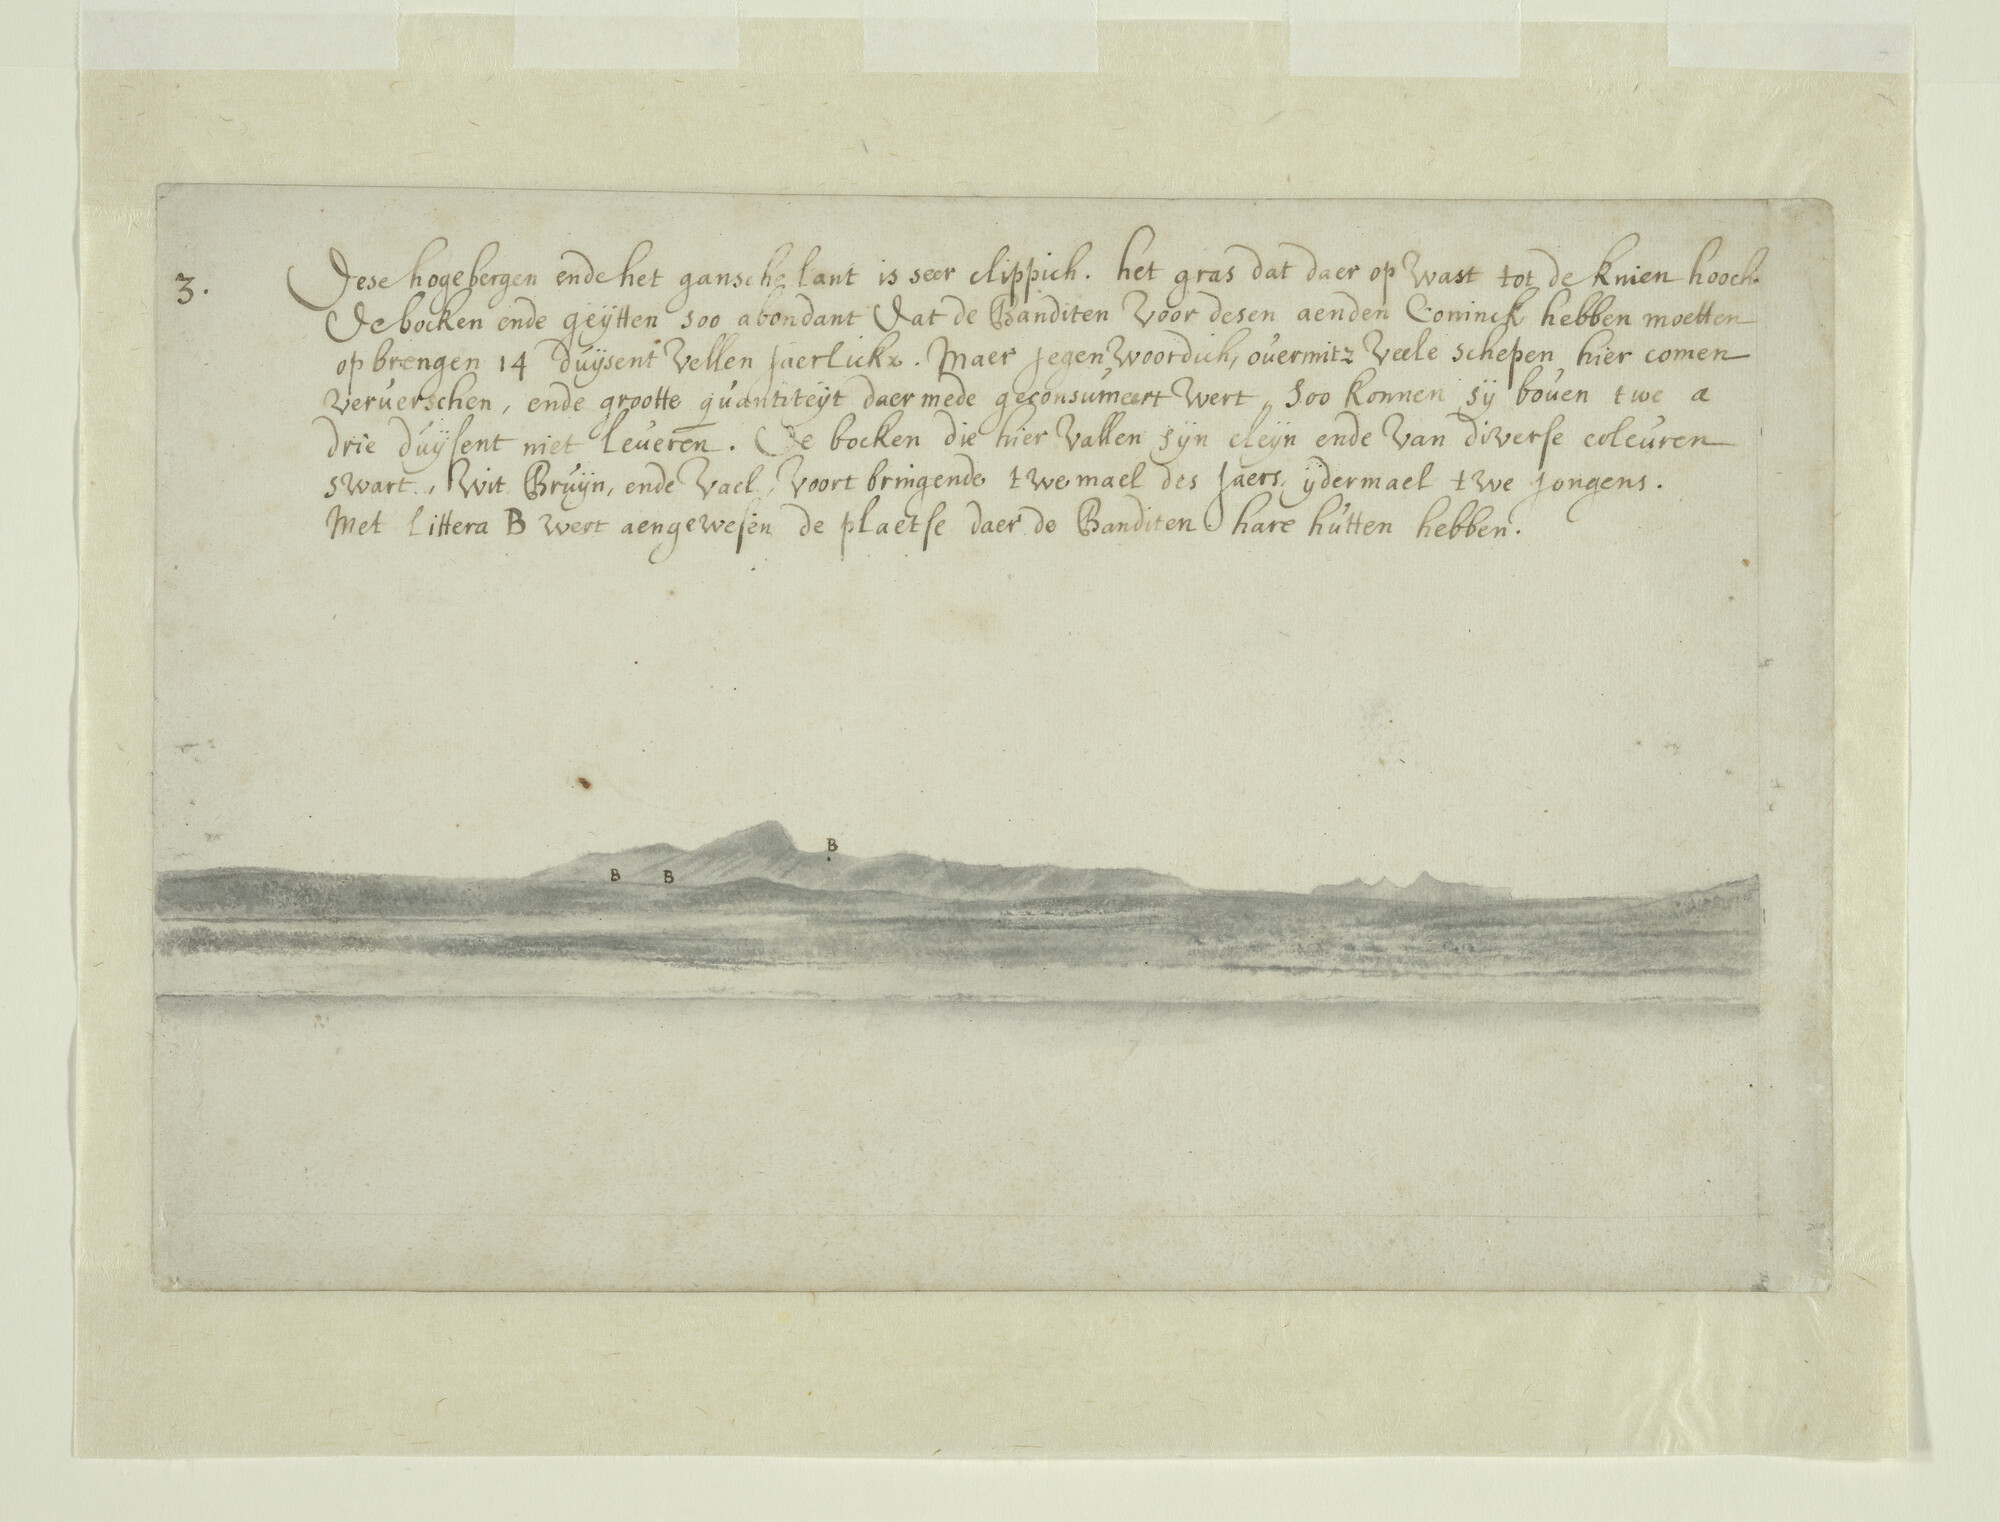 3. Dese hogebergen ende het gansche lant is seer clippich. het gras dat daer op wast tot de knien hooch.
De bocken ende geytten soo abondant dat de Banditen voor desen aenden Coninck hebben moetten
opbrengen 14 duysent vellen jaerlickx. Maer jegenwoordich, overmitz veele schepen hier comen
ververschen, ende grootte quantiteyt daermede geconsumeert wert, soo konnen sy boven twe a
drie duysent niet leveren. De bocken die hier vallen syn cleyn ende van diverse coleuren
swart, wit Bruyn, ende vael, voortbringende twemael des jaers ydermael twe jongens.
Met littera B wert aengewesen de plaetse daer de Banditen hare hutten hebben.
B
B B